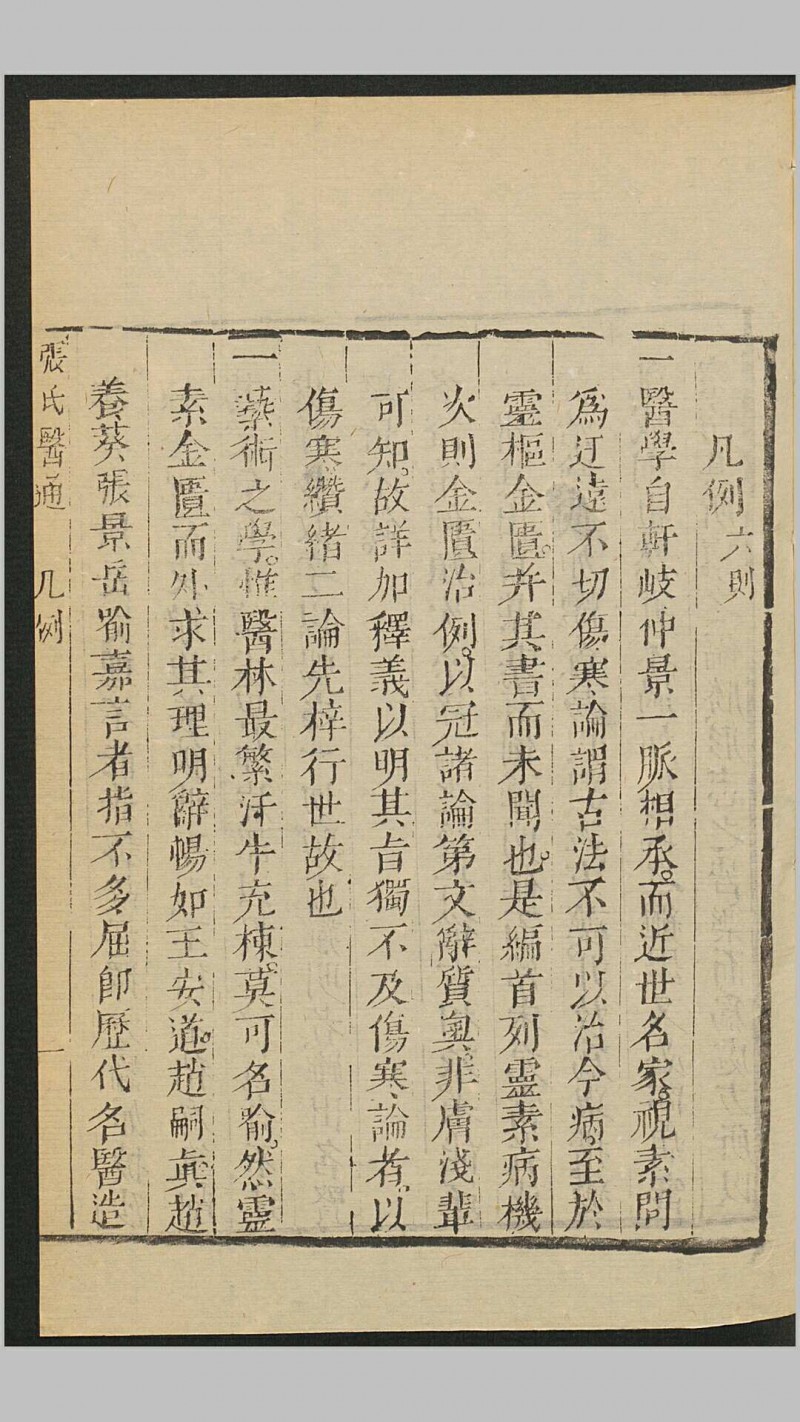 凡例六則
一醫學自軒岐仲景一脈相承。而近世名家。視素問
爲迂遠不切傷寒論謂古法不可以治今病。至於
靈樞金匱。幷其書而未聞也。是編首列靈素病機
次則金匱治例。以冠諸論第文辭質奧。非膚淺輩
可知。故詳加釋義以明其旨獨不及傷寒論者。以
傷寒纘緒二論先梓行世故也
一藝術之學。惟醫林最繁汗牛充棟。莫可名喻。然靈
素金匱而外求其理明辭暢如王安道。趙嗣眞、趙
養葵張景岳喻嘉言者指不多屈卽歷代名醫造
張氏醫通 凡例 一